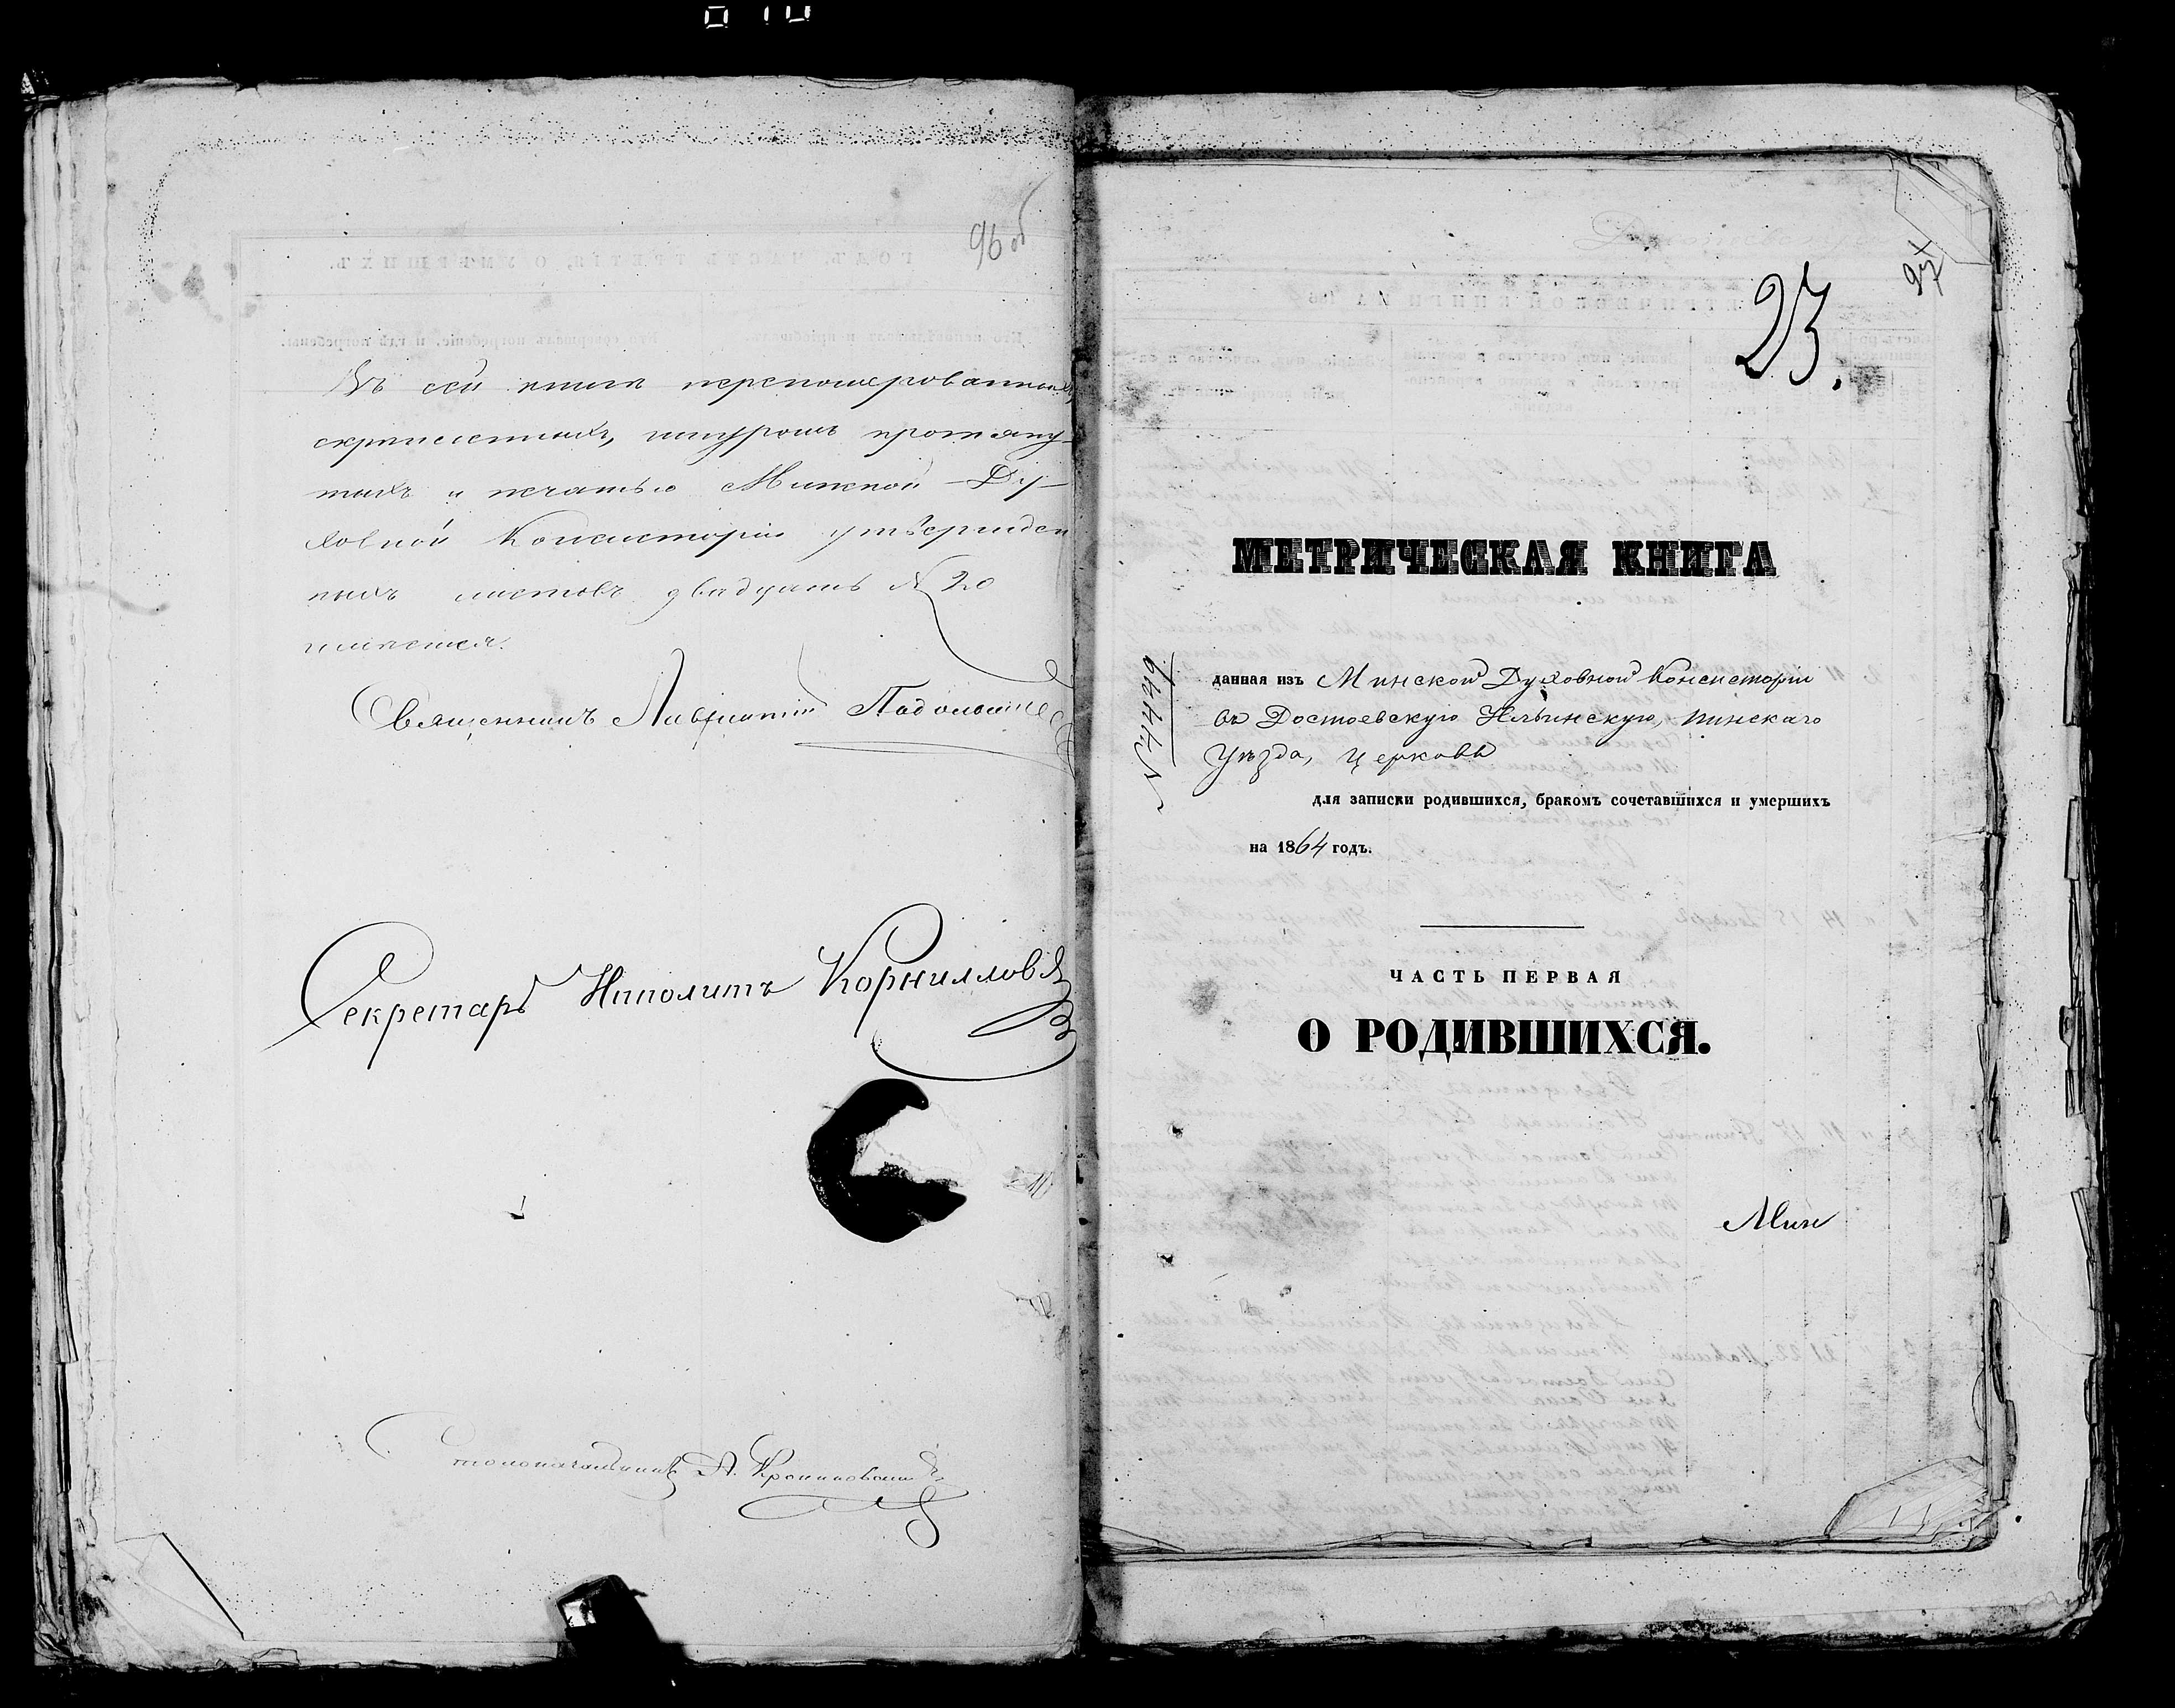 96 об
Въ сей книгѣ перенумерованныхъ,
скрѣпленныхъ, шнуромъ протяну-
тыхъ и печатью Минской Ду-
ховной Консисторіи утвержден
ныхъ листовъ двадцать N 20
имѣется.
Священникъ
Секретарь Ипполитъ Корниллов
Столоначальникъ А.
97
23.
МЕТРИЧЕСКАЯ КНИГА
N 4449
данная изъ Минской Духовной Консисторіи
въ Достоевскую Ильинскую, Пинскаго
Уѣзда, церковь
для записки родившихся, бракомъ сочетавшихся и умершихъ
на 1864 годъ.
ЧАСТЬ ПЕРВАЯ
О РОДИВШИХСЯ.
Мин